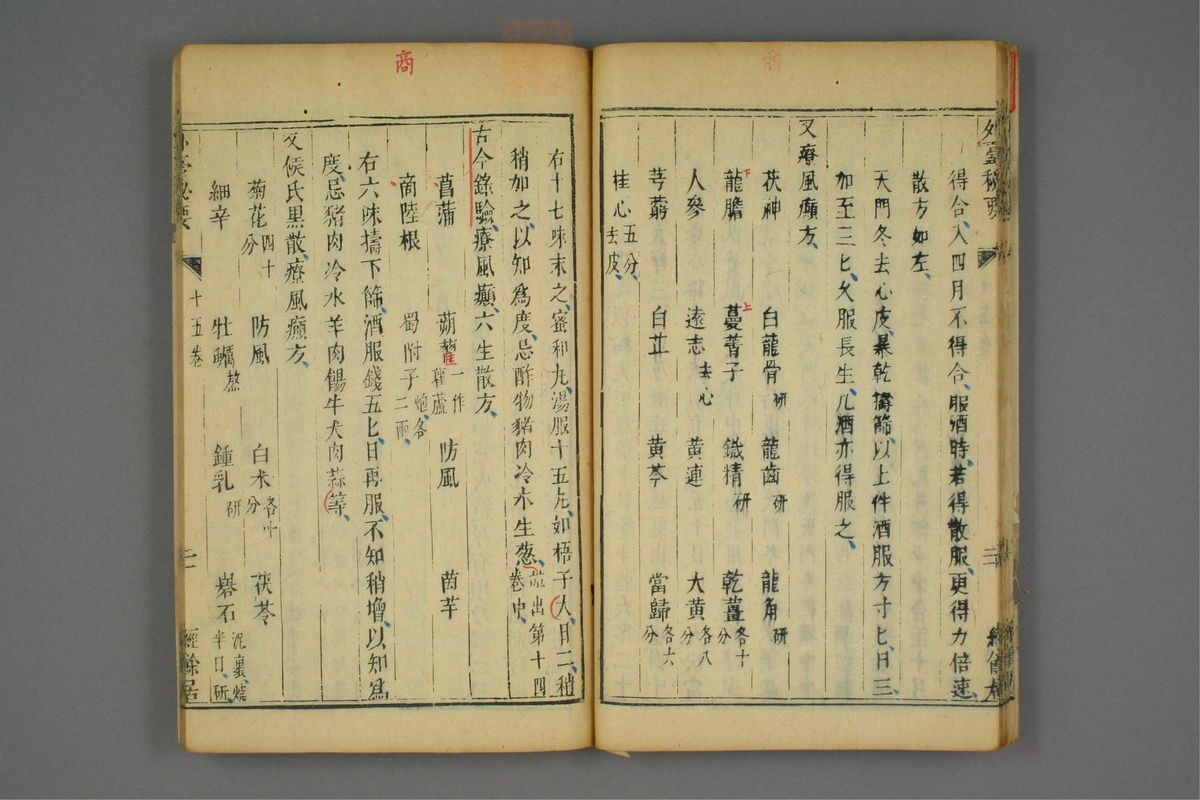 得合、入四月不得合、服酒時、若得散服、更得力倍速、
散方如左、
天門冬去心皮、暴乾擣篩、以上件酒服方寸匕、日三、
加至三匕、久服長生、凡酒亦得服之、
又療風癲方、
茯神 白龍骨研 龍齒研 龍角研
龍膽下 蔓菁子上 鐵精研 乾薑各十分
人參 遠志去心 黃連 大黃各八分
芎藭 白芷 黃芩 當歸各六分
桂心五分、去皮、
右十七味末之、蜜和丸、湯服十五丸、如梧子大、日二、稍
稍加之、以知爲度、忌酢物豬肉冷水生葱、出第十四卷中、
古今錄驗、療風癲、六生散方、
菖蒲 蒴藋一作藋蘆 防風 茵芋
商陸根 蜀附子二兩、炮、各
右六味擣下篩、酒服錢五匕、日再服、不知稍增、以知爲
度、忌豬肉冷水羊肉餳牛犬肉蒜等、
又侯氏黑散、療風癲方、
菊花四十分 防風 白朮各十分 茯苓
細辛 牡蠣熬 鍾乳研 礜石泥裹燒半日、研、
十五卷
二
經餘居
商